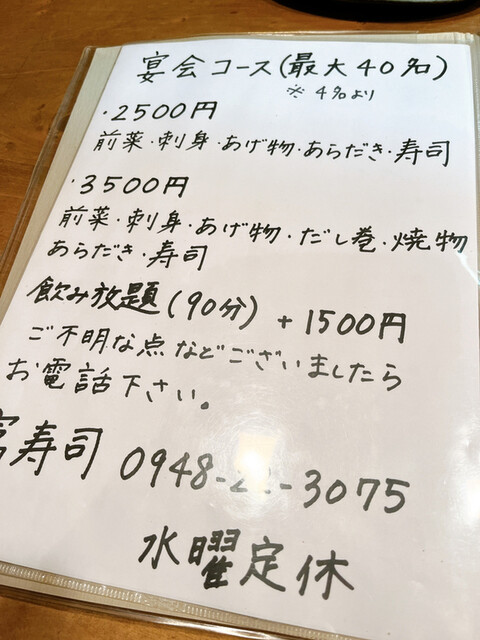 宴会コース(最大40名)
※ 4名より
・2500円
前菜・刺身・あげ物・あらだき・寿司
・3500円
前菜・刺身・あげ物・だし巻・焼物
あらだき・寿司
飲み放題(90分) + 1500円
ご不明な点などございましたら
お電話下さい。
寿司 0948- -3075
水曜定休